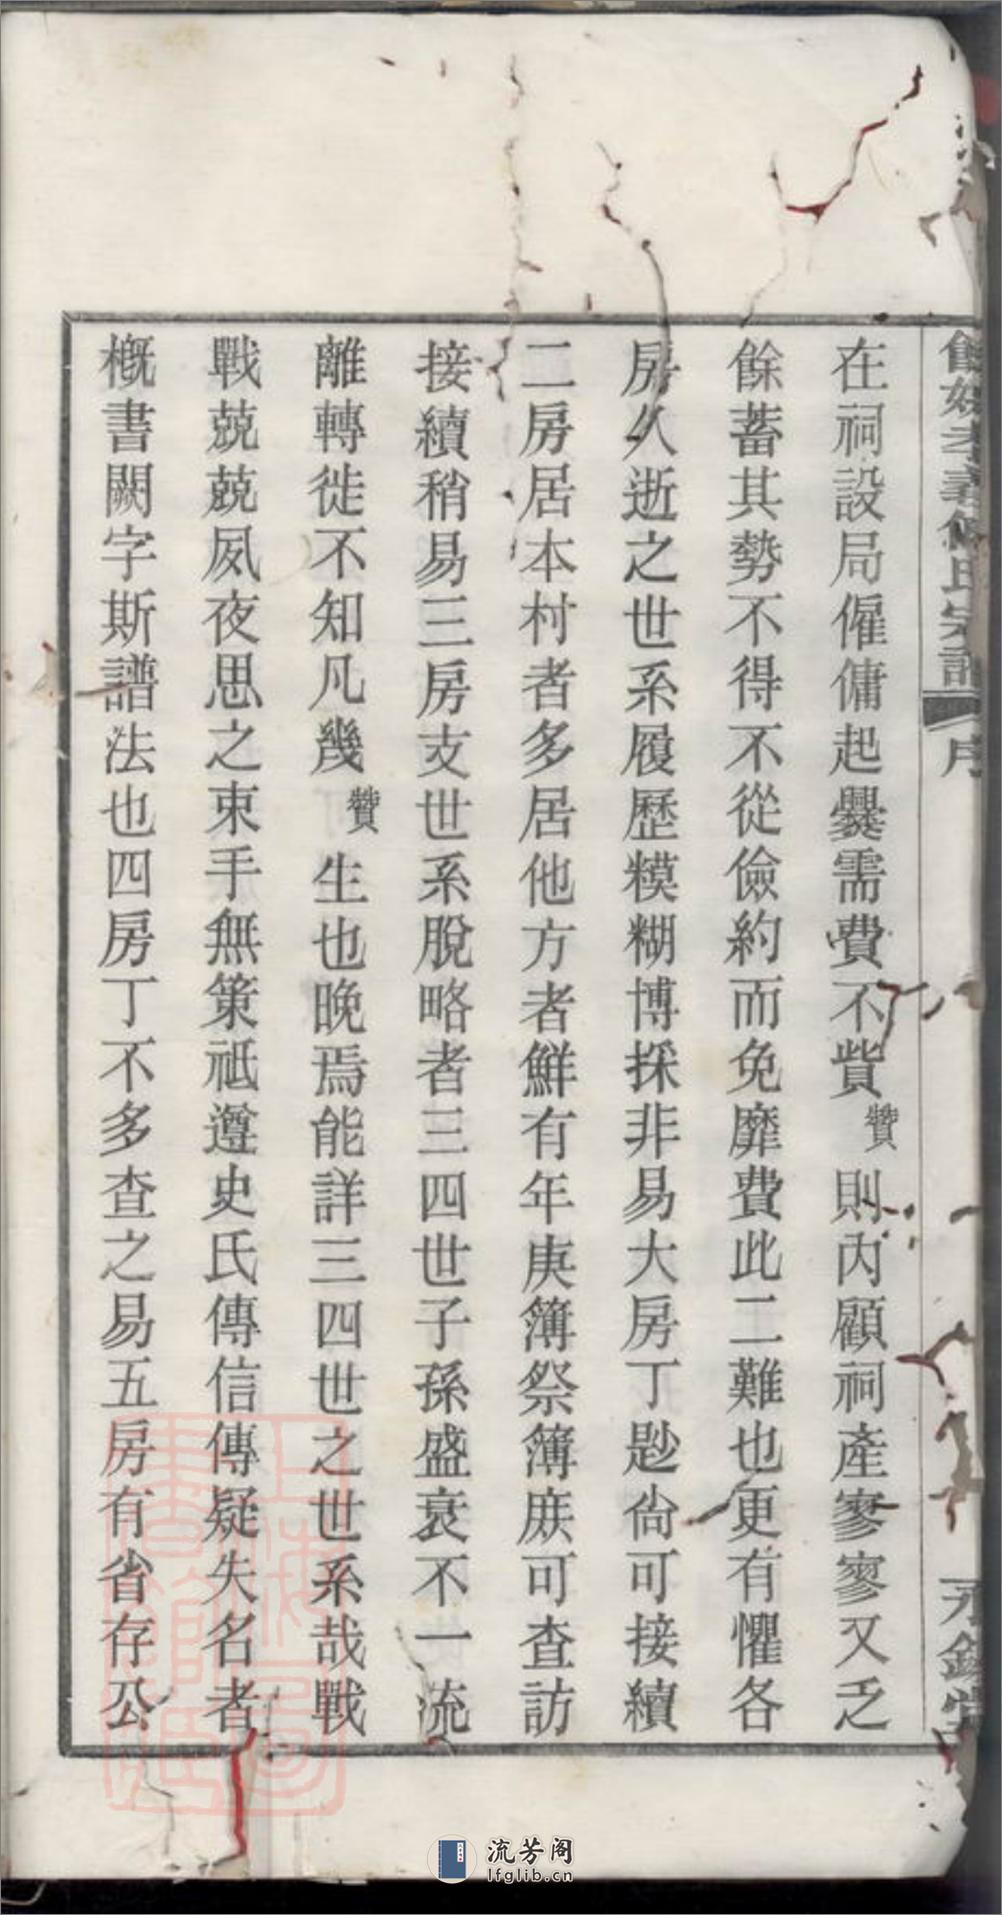 在祠設局僱傭起爨需費不貲贊則內顧祠產寥寥又乏
餘蓄其勢不得不從儉約而免靡費此二難也更有懼各
房久逝之世系履歷糢糊博採非易大房丁尟尙可接續
二房居本村者多居他方者鮮有年庚簿祭簿庶可查訪
接續稍易三房支世系脫略者三四世子孫盛衰不一流
離轉徙不知凡幾贊生也晚焉能詳三四世之世系哉戰
戰兢兢夙夜思之束手無策祗遵史氏傳信傳疑失名者
槪書闕字斯譜法也四房丁不多查之易五房有省存公
上海圖書館藏
流芳阁
lfglib.cn